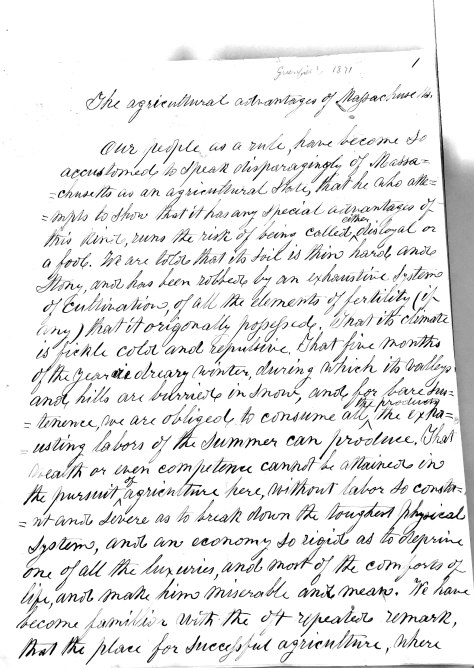 Greenfield 1871
1
The agricultural advantages of Massachusetts.
Our people as a rule, have become so
accustomed to speak disparagingly of Massa=
=chusetts as an agricultural State, that he who atte=
=mpts to show that it has any special advantages of
this kind, runs the risk of being called either disloyal or
a fool. We are told that its soil is thin hard and
stony, and has been robbed by an exhaustive system
of cultivation, of all the elements of fertility (if
any) that it origonally possessed. That its climate
is fickle cold and repulsive. That five months
of the year are dreary winter, during which its valleys
and hills are burried in snow, and for bare sus=
=tenence, we are obliged to consume all the products the exha=
=usting labors of the summer can produce. That
wealth or even competence cannot be attained in
the pursuit of agriculture here, without labor so consta=
=nt and severe as to break down the toughest physical
system, and an economy so rigid as to deprive
one of all the luxuries, and most of the comforts of
life, and make him miserable and mean. We have
become familliar with the oft repeated remark,
that the place for successful agriculture, where